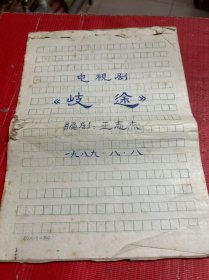 电视剧
《歧途》
编剧：王志杰
一九八九·八·八